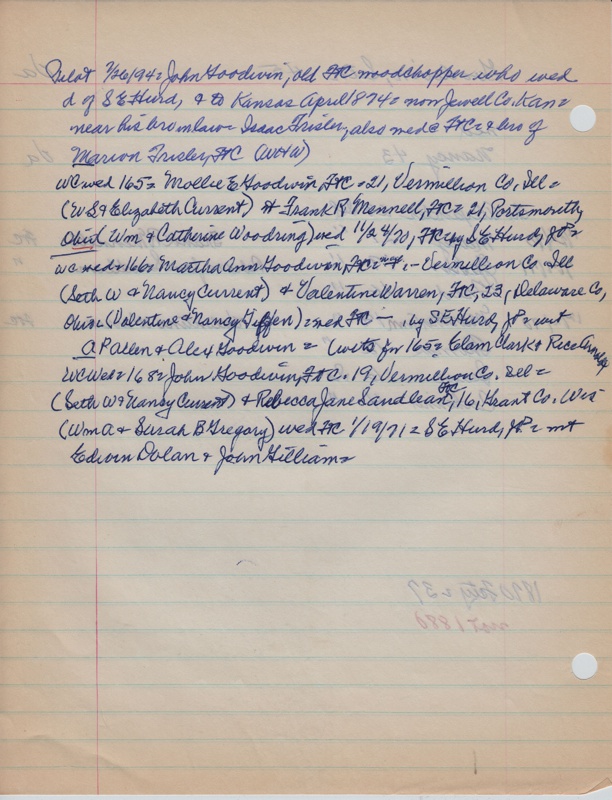 Pilot 7/26/94 = John Goodwin, old FtC woodchopper who wed
d of S E Hurd, & to Kansas April 1874 = now Jewell Co. Kan =
near his bro in law = Isaac Frisley, also wed @ FtC = & bro of
Marion Frisler, FtC (W&W)
WC wed 165 = Mollie E Goodwin, FtC = 21, Vermillion Co. Ill =
(W S & Elizabeth Current) & Frank R Mennell, FtC = 21, Portsmouth
Ohio (Wm & Catherine Woodring) wed 11/24/70, FtC by S E Hurd, JP =
WC wed = 166 = Martha Ann Goodwin, FtC = - Vermillion Co. Ill
(Seth W & Nancy Current) & Valentine Warren, FtC, 23, Delaware Co,
Ohio (Valentine & Nancy Giffen) = wed FtC - by S E Hurd, JP =
A P Allen & Alex Goodwin = (wits for 165 = Elam Clark & Rice
WC Wed = 168 = John Goodwin, FtC. 19, Vermillion Co. Ill =
(Seth W & Nancy Current) & Rebecca Jane Sandlean, FtC, 16, Grant Co. Wis
(Wm A & Surah B Gregory) wed FtC 1/19/71 = S E Hurd, JP =
Edwin Dolan & John Gilliam =
1870 Fety = 37
not 1880